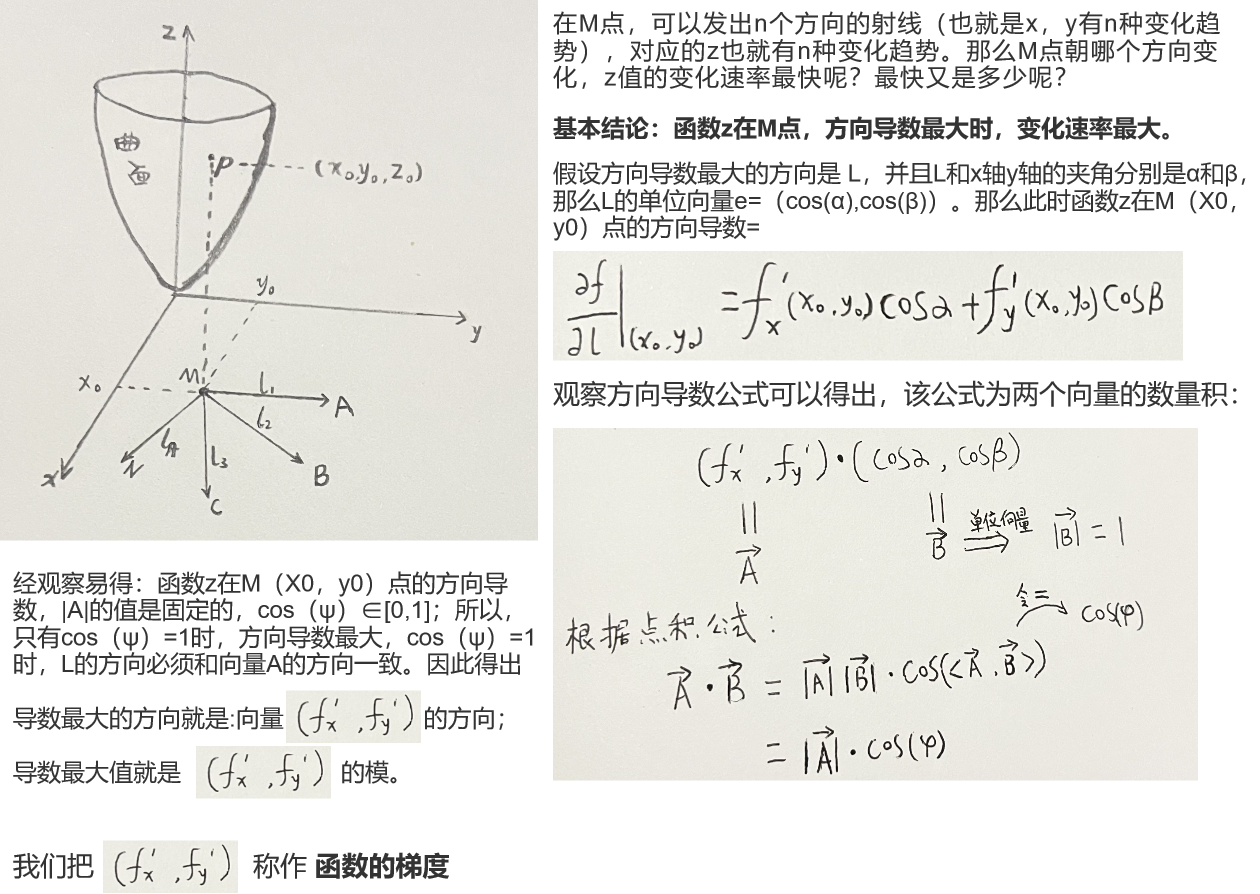 z
曲
面
P
(x₀,y₀,z₀)
y₀
y
x₀
M
l₁
A
l₂
B
l₃
C
N
x
在M点，可以发出n个方向的射线（也就是x，y有n种变化趋
势），对应的z也就有n种变化趋势。那么M点朝哪个方向变
化，z值的变化速率最快呢？最快又是多少呢？
基本结论：函数z在M点，方向导数最大时，变化速率最大。
假设方向导数最大的方向是 L，并且L和x轴y轴的夹角分别是α和β，
那么L的单位向量e=（cos(α),cos(β)）。那么此时函数z在M（X0，
y0）点的方向导数=
∂f/∂l |(x₀,y₀) = fx′(x₀,y₀)cosα+fy′(x₀,y₀)cosβ
观察方向导数公式可以得出，该公式为两个向量的数量积：
(fx′ ,fy′)·(cosα , cosβ)
|| ||
A⃗ B⃗ 单位向量 ⇒ |B⃗| = 1
令= cos(φ)
根据点积公式：
A⃗·B⃗ = |A⃗||B⃗|·cos(<A⃗,B⃗>)
= |A⃗|·cos(φ)
经观察易得：函数z在M（X0，y0）点的方向导
数，|A|的值是固定的，cos（ψ）∈[0,1]；所以，
只有cos（ψ）=1时，方向导数最大，cos（ψ）=1
时，L的方向必须和向量A的方向一致。因此得出
导数最大的方向就是:向量 (fx′ ,fy′) 的方向；
导数最大值就是 (fx′ ,fy′) 的模。
我们把 (fx′ ,fy′) 称作 函数的梯度